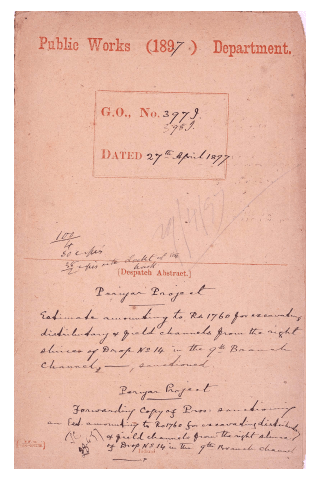 Public Works (1897.) Department.
G.O., No. 397 I.
398 I.
DATED 27th April 1897.
100
50 copies
[Despatch Abstract.]
Periyar Project
Estimate amounting to Rs 1760 for excavating
distributary & field channels from the right
sluices of Drop No 14 in the 9th Branch
Channel, sanctioned
Periyar Project
Forwarding Copy of Proc: sanctioning
an Est amounting to Rs 1760 for excavating distributary
& field channels from the right sluices
of Drop No 14 in the 9th Branch channel